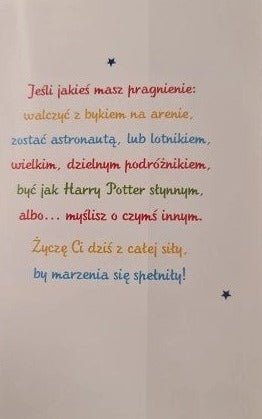 Jeśli jakieś masz pragnienie:
walczyć z bykiem na arenie,
zostać astronautą, lub lotnikiem,
wielkim, dzielnym podróżnikiem,
być jak Harry Potter słynnym,
albo... myślisz o czymś innym.
Życzę Ci dziś z całej siły,
by marzenia się spełniły!